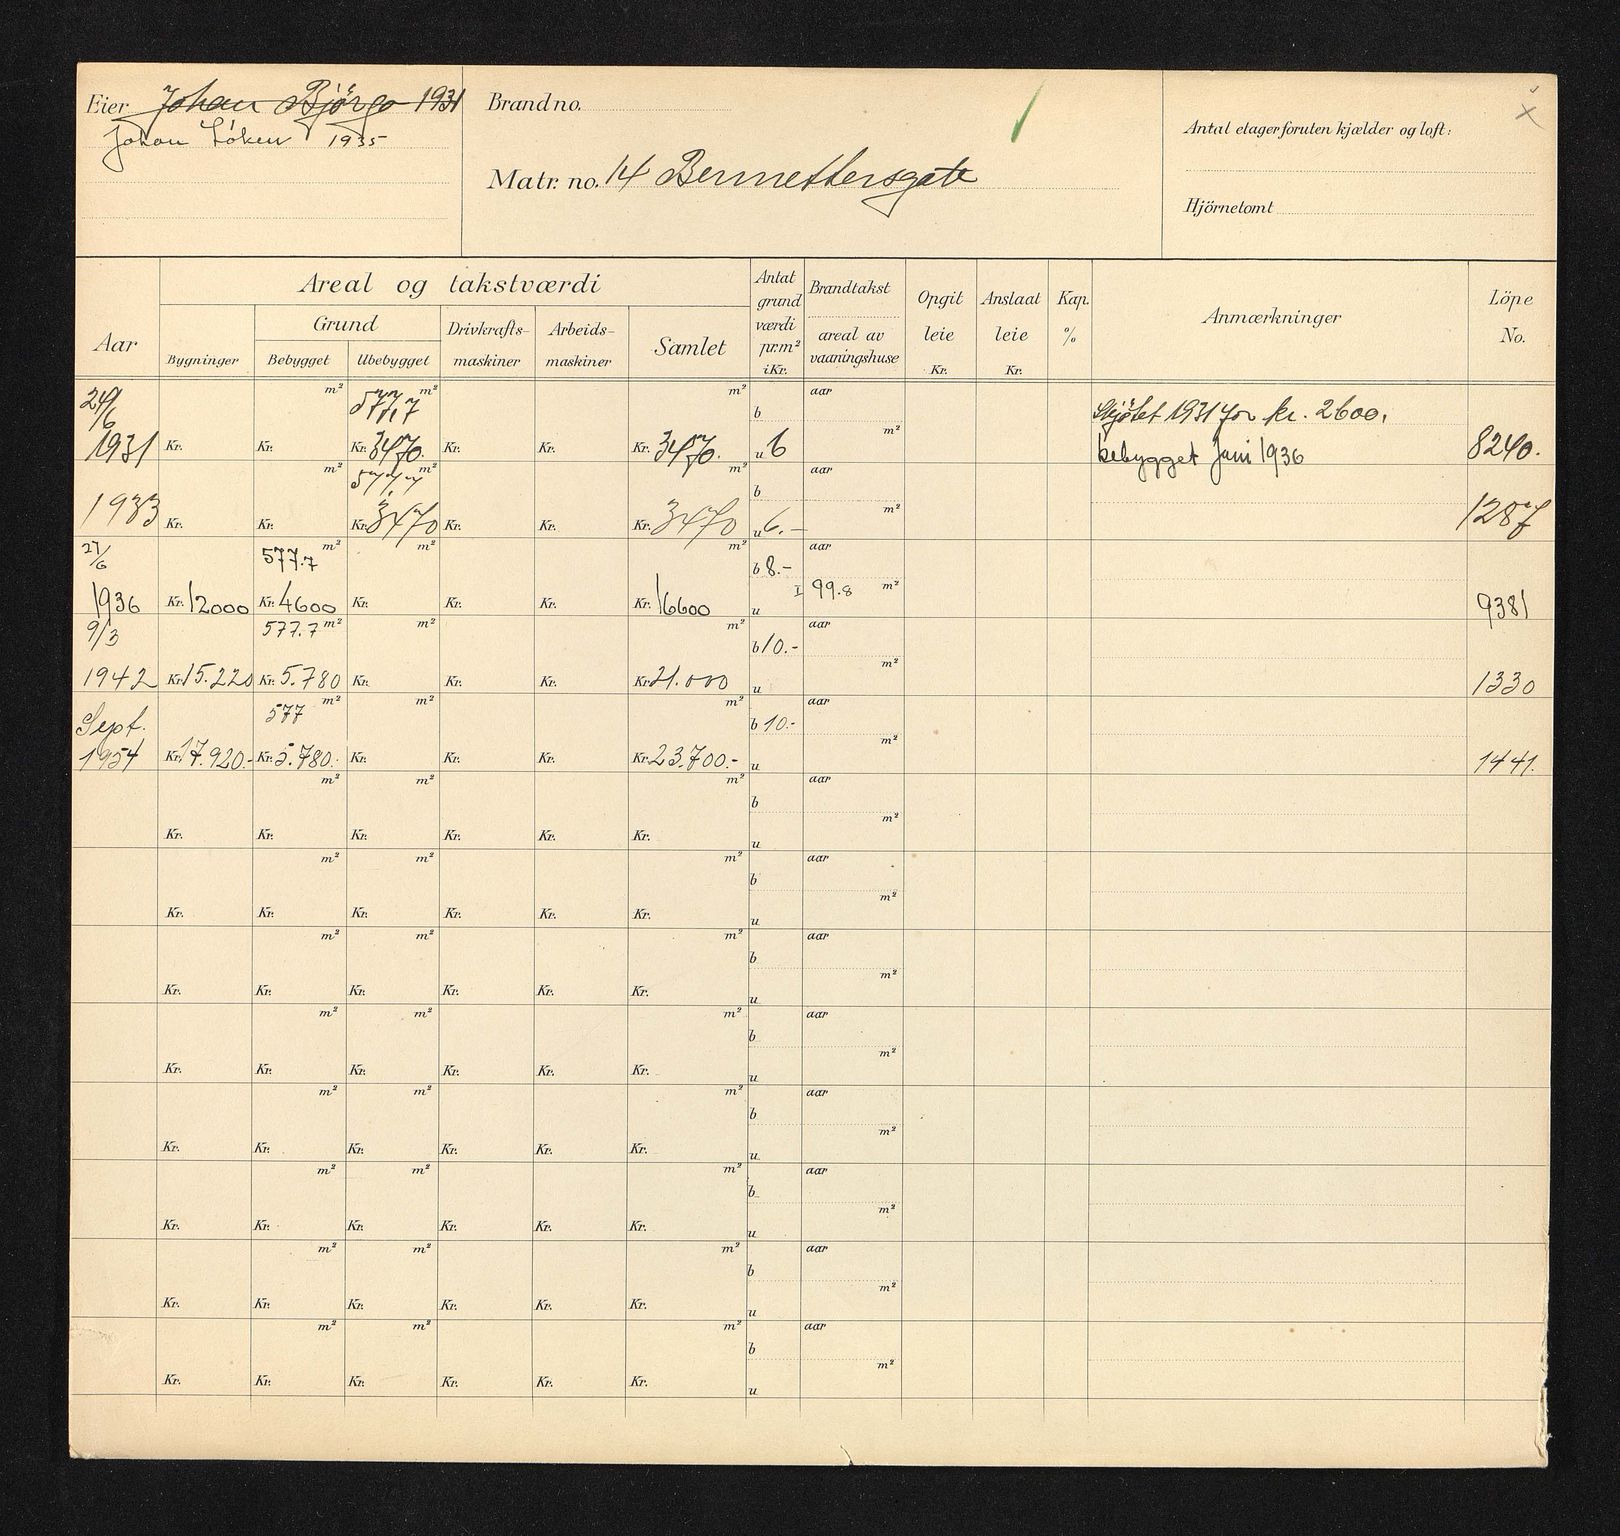 Eier Johan Bjørgo 1931
Johan Løken 1935
Brand no.
Matr. no. 14 Bennettersgate
Antal etager foruten kjælder og loft:
Hjörnetomt
Aar
Areal og takstværdi
Bygninger
Grund
Bebygget
Ubebygget
Drivkrafts-
maskiner
Arbeids-
maskiner
Samlet
Antat
grund
værdi
pr. m²
i Kr.
Brandtakst
areal av
vaaningshuse
Opgit
leie
Kr.
Anslaat
leie
Kr.
Kap.
%
Anmærkninger
Löpe
No.
24/6 m² 577,7 m² m² b aar Skjøtet 1931 for kr. 2600,
1931 Kr. Kr. Kr. 3470. Kr. Kr. Kr. 3470. u 6 m² bebygget juni 1936 8240.
m² 577,7 m² m² b aar
1933 Kr. Kr. Kr. 3470 Kr. Kr. Kr. 3470 u 6.- m² 1287
27/6 577.7 m² m² m² b 8.- aar
1936 Kr. 12000 Kr. 4600 Kr. Kr. Kr. Kr. 16600 u I 99.8 m² 9381
9/3 577.7 m² m² m² b 10.- aar
1942 Kr. 15.220 Kr. 5.780 Kr. Kr. Kr. Kr. 21.000 u m² 1330
Sept. 577 m² m² m² b 10.- aar
1954 Kr. 17.920.- Kr. 5.780.- Kr. Kr. Kr. Kr. 23.700.- u m² 1441.
m² m² m² b aar
Kr. Kr. Kr. Kr. Kr. Kr. u m²
m² m² m² b aar
Kr. Kr. Kr. Kr. Kr. Kr. u m²
m² m² m² b aar
Kr. Kr. Kr. Kr. Kr. Kr. u m²
m² m² m² b aar
Kr. Kr. Kr. Kr. Kr. Kr. u m²
m² m² m² b aar
Kr. Kr. Kr. Kr. Kr. Kr. u m²
m² m² m² b aar
Kr. Kr. Kr. Kr. Kr. Kr. u m²
m² m² m² b aar
Kr. Kr. Kr. Kr. Kr. Kr. u m²
m² m² m² b aar
Kr. Kr. Kr. Kr. Kr. Kr. u m²